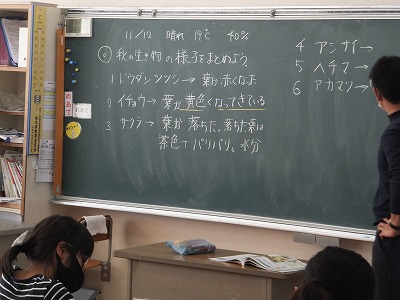 11/12 晴れ 19℃ 40%
秋の生き物の様子をまとめよう
1 ドウダンツツジ→ 葉が赤くなった
2 イチョウ→ 葉が黄色くなってきている
3 サクラ→ 葉が落ちた。落ちた葉は
茶色でパリパリ、水分
4 アジサイ→
5 ヘチマ→
6 アカマツ→
めあて